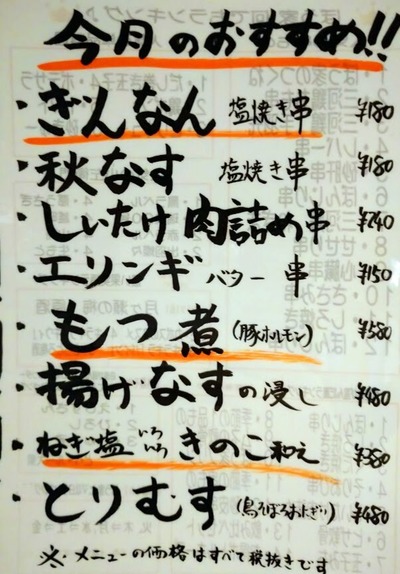 今月のおすすめ!!
・ぎんなん 塩焼き串 ¥180
・秋なす 塩焼き串 ¥180
・しいたけ 肉詰め串 ¥240
・エリンギ バター 串 ¥150
・もつ煮(豚ホルモン) ¥580
・揚げなすの浸し ¥480
・ねぎ塩 いろいろ きのこ和え ¥380
・とりむす(鳥そぼろおにぎり) ¥480
※メニューの価格はすべて税抜きです